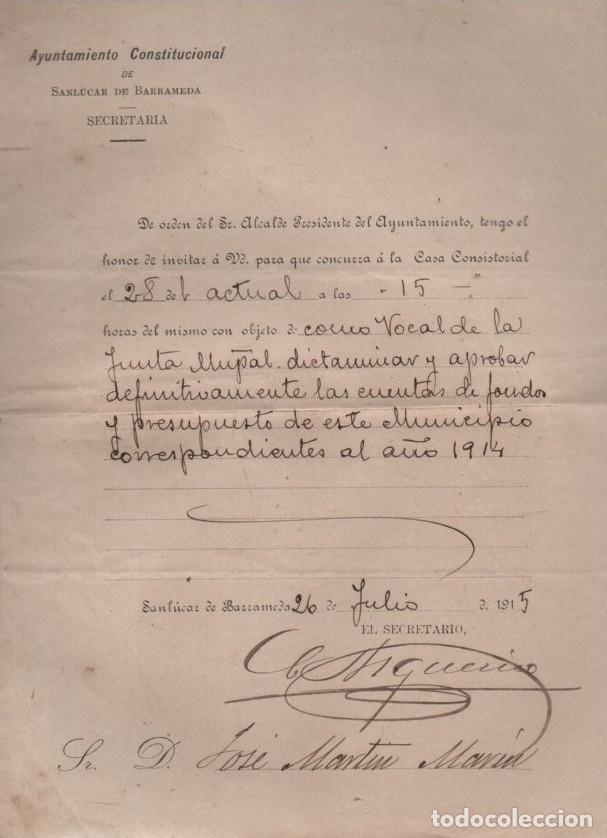 Ayuntamiento Constitucional
DE
SANLÚCAR DE BARRAMEDA
SECRETARIA
De orden del Sr. Alcalde Presidente del Ayuntamiento, tengo el
honor de invitar á Vd. para que concurra á la Casa Consistorial
el 28 del actual a las - 15 -
horas del mismo con objeto de como Vocal de la
Junta Mupal. dictaminar y aprobar
definitivamente las cuentas de fondos
y presupuesto de este Municipio
correspondientes al año 1914
Sanlúcar de Barrameda 26 de Julio de 1915
EL SECRETARIO,
Sr. D. José Martin Marin
todocoleccion